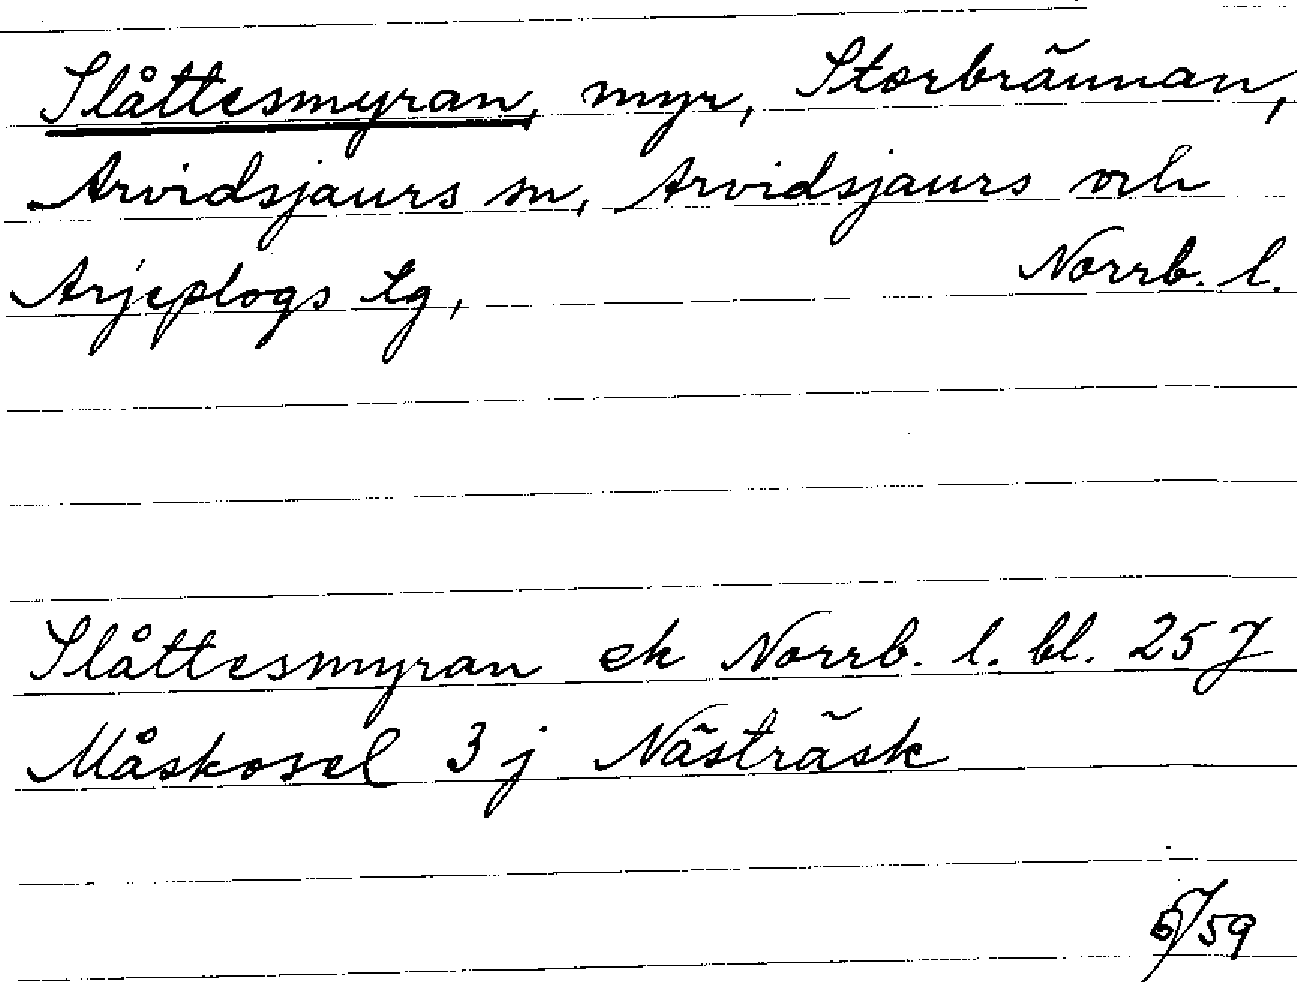 Slåttesmyran, myr, Storbrännan,
Arvidsjaurs sn, Arvidsjaurs och
Arjeplogs tg, Norrb. l.
Slåttesmyran ek Norrb. l. bl. 25 J
Måskosel 3 j Nästräsk
6/59